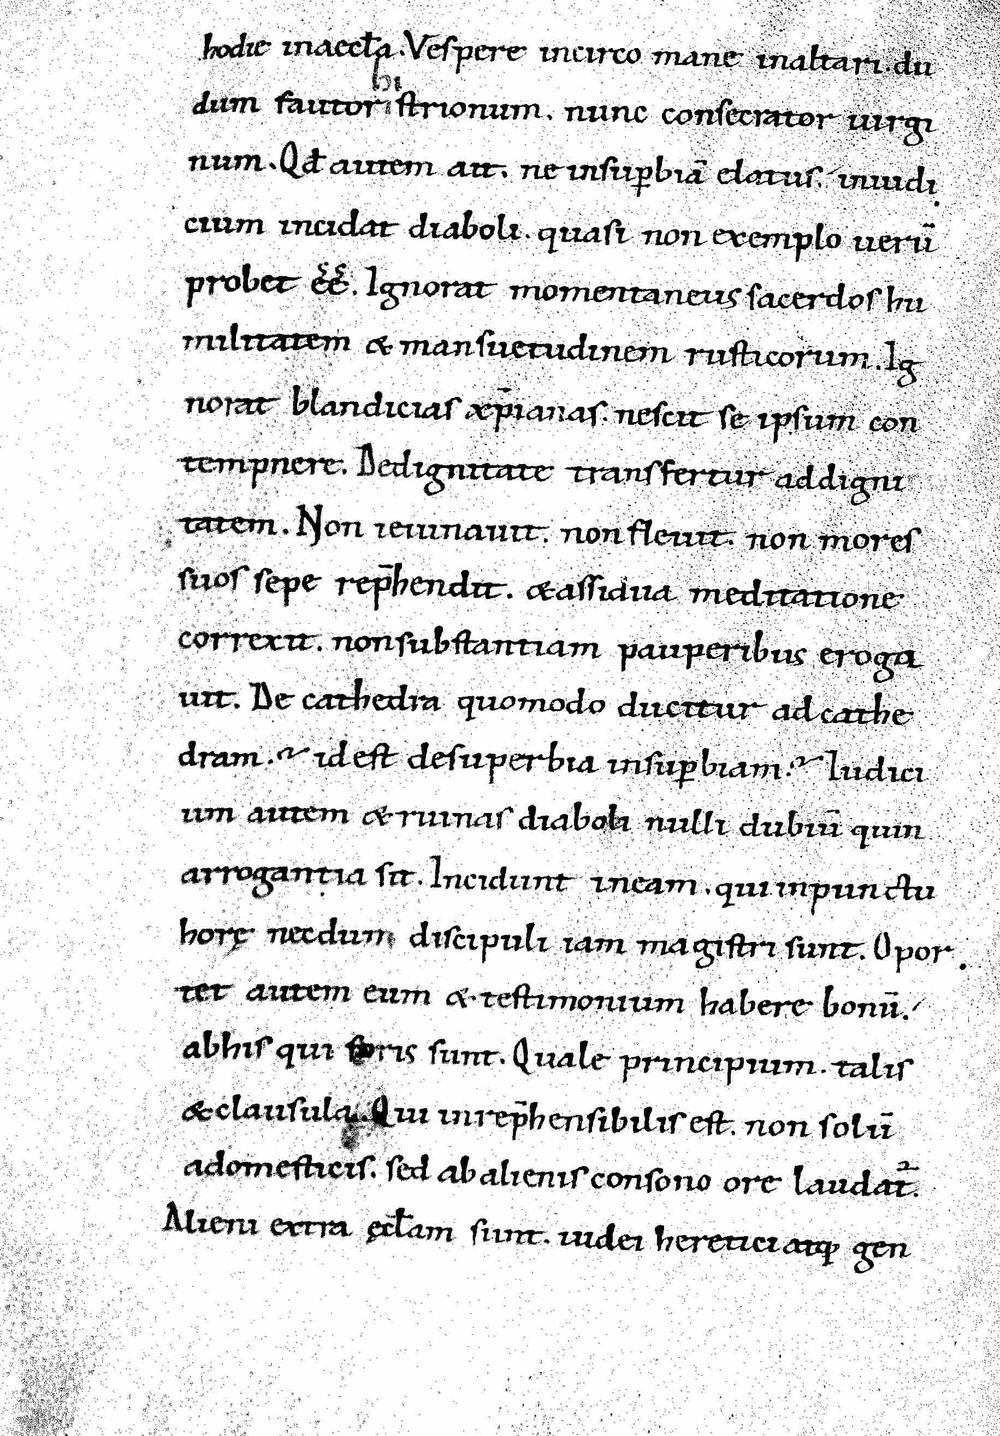 hodie inaeccƚa. Veſpere incirco mane inaltari. du
dum fautor hiſtrionum. nunc conſecrator uirgi
num. Qđ autem ait. ne inſuꝑbiā elatus. inuidi
cium incidat diaboli. quaſi non exemplo uerū
probet ee͛. Ignorat momentaneus ſacerdoſ hu
militatem & manſuetudinem ruſticorum. Ig
norat blandiciaſ xp̄ianaſ. neſcit ſe ipſum con
tempnere. Dedignitate tranſfertur addigni
tatem. Non ieiunauit. non fleuit. non moreſ
ſuoſ ſepe rep̄hendit. &aſſidua meditatione
correxit. nonſubſtantiam pauperibus eroga
uit. De cathedra quomodo ducitur adcathe
dram. id eſt deſuperbia inſuꝑbiam. Iudici
um autem & ruinaſ diaboli nulli dubiū quin
arrogantia ſit. Incidunt ineam. qui inpunctu
horę necdum diſcipuli iam magiſtri ſunt. Opor
tet autem eum & teſtimonium habere bonū.
abhiſ qui foris ſunt. Quale principium. taliſ
&clauſula. Qui inrep̄henſibiliſ eſt. non ſolū
adomeſticiſ. ſed abalieniſ conſono ore laudat᷑.
Alieni extra ęcƚam ſunt. iudei heretici atq; gen